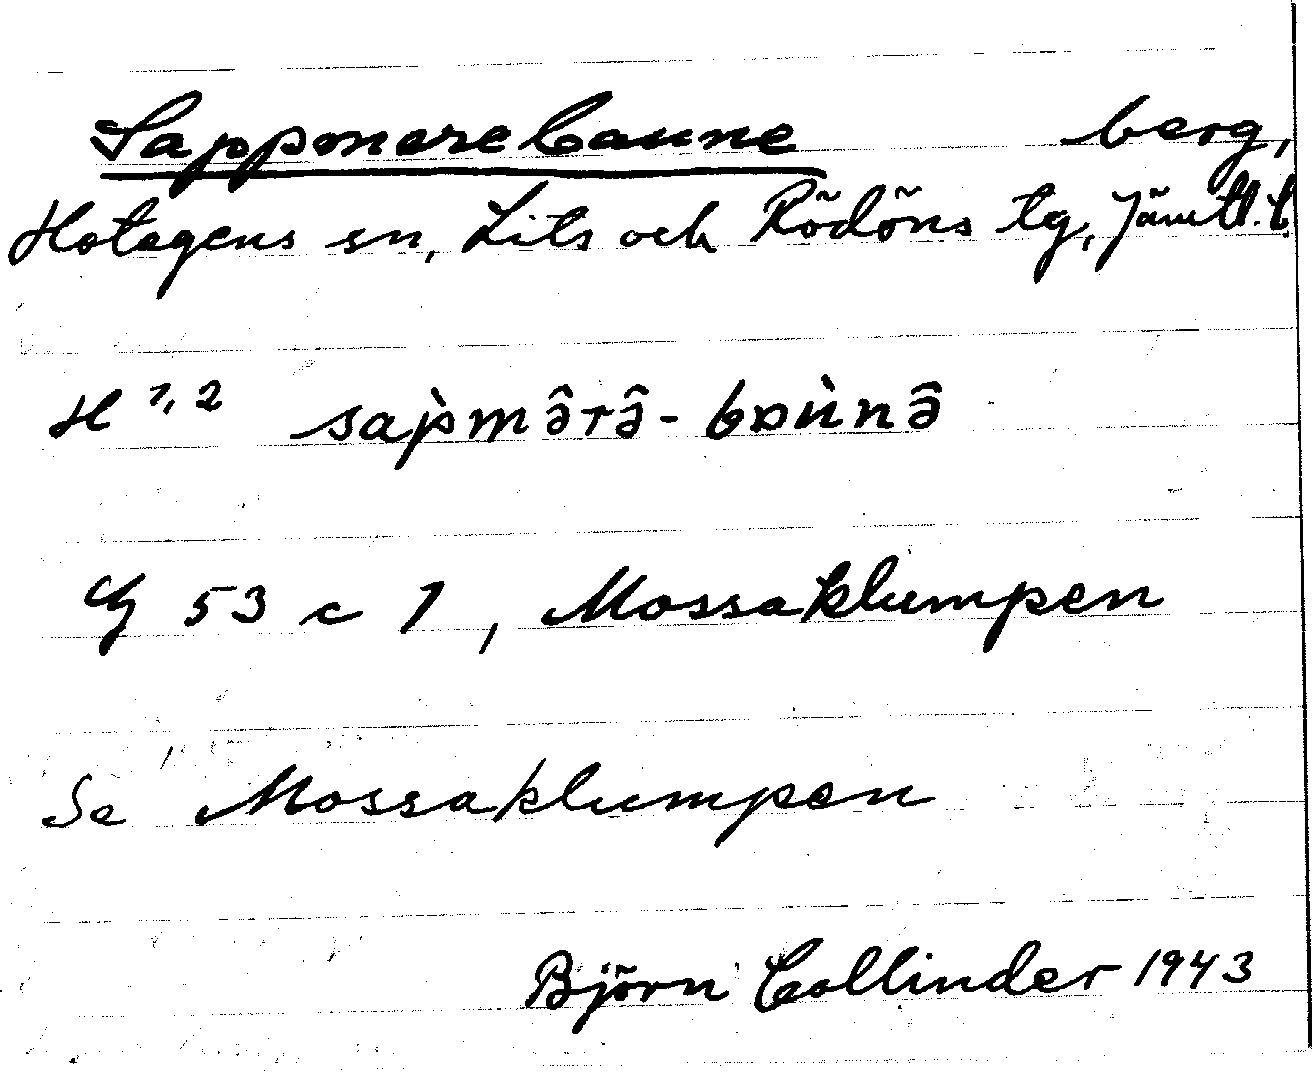 Sappmerebaune berg,
Hotagens sn, Lits och Rödöns tg, Jämtl. l.
H 1, 2 sap̀mə̂rə̂-bɒu̇̀nə̂
G 53 c 1, Mossaklumpen
Se Mossaklumpen
Björn Collinder 1943